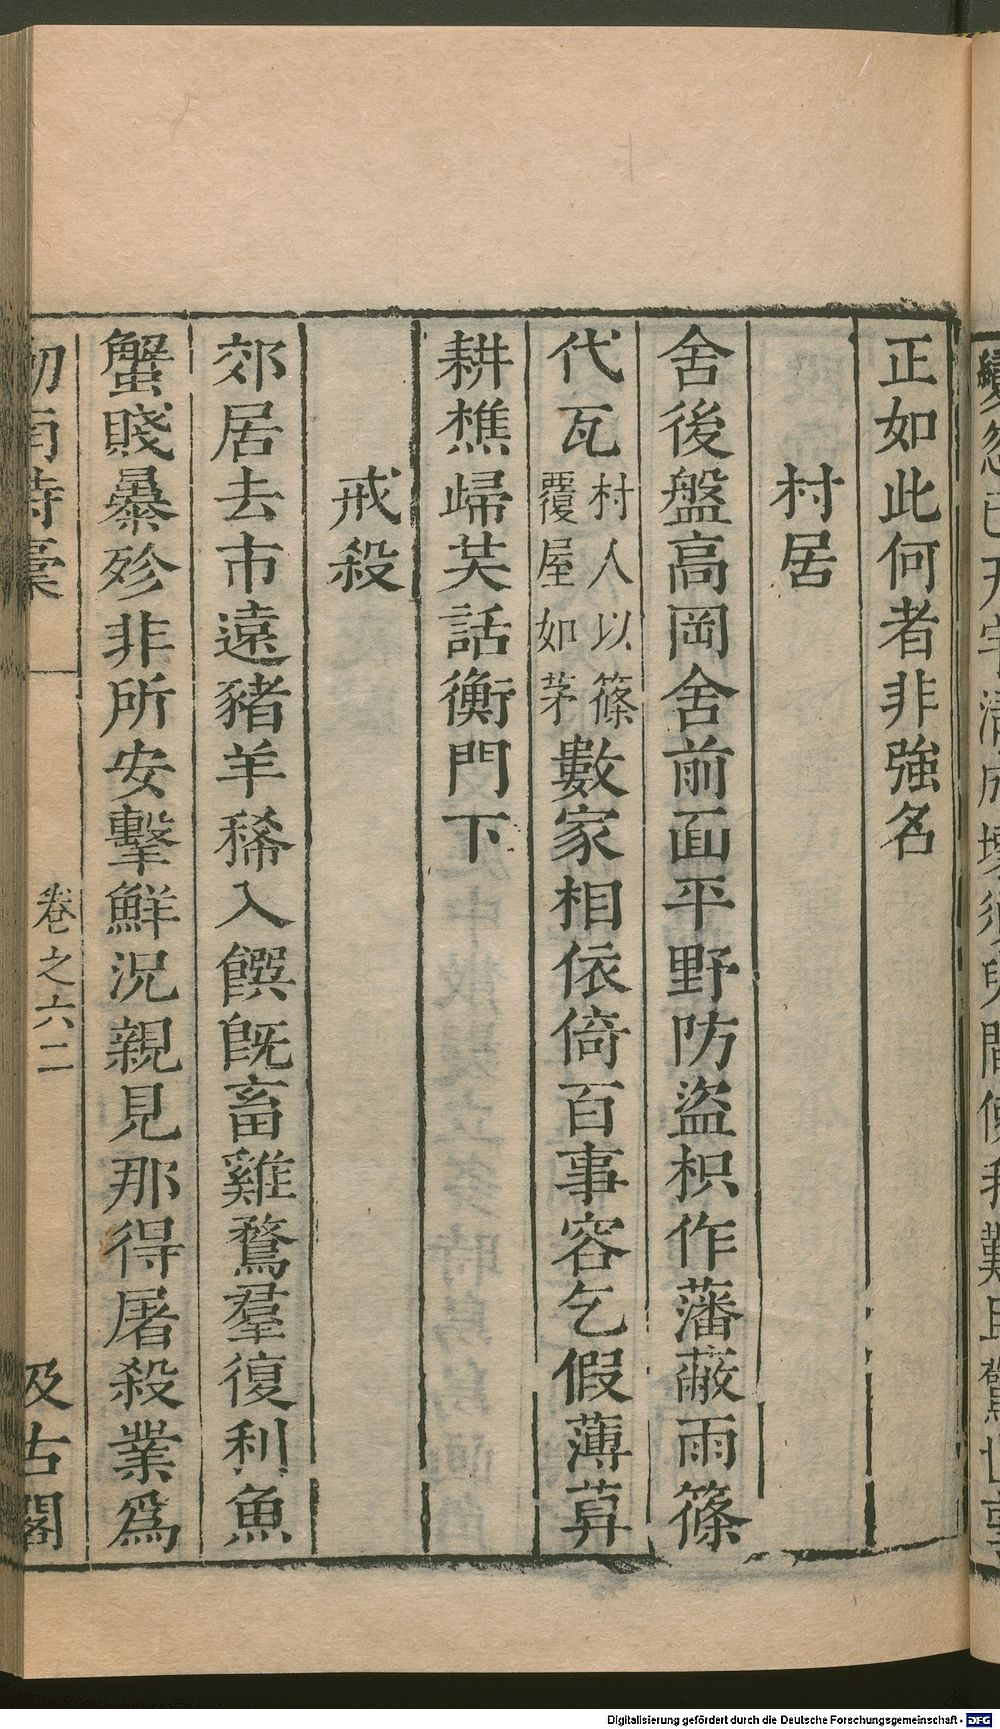 正如此何者非強名
村居
舍後盤高岡舍前面平野防盜枳作藩蔽雨篠
代瓦村人以篠覆屋如茅數家相依倚百事容乞假薄莫
耕樵歸芺話衡門下
戒殺
郊居去市遠豬羊稀入饌旣畜雞鶩羣復利魚
蟹賤暴殄非所安擊鮮況親見那得屠殺業爲
卷之六 二
汲古閣
Digitalisierung gefördert durch die Deutsche Forschungsgemeinschaft - DFG